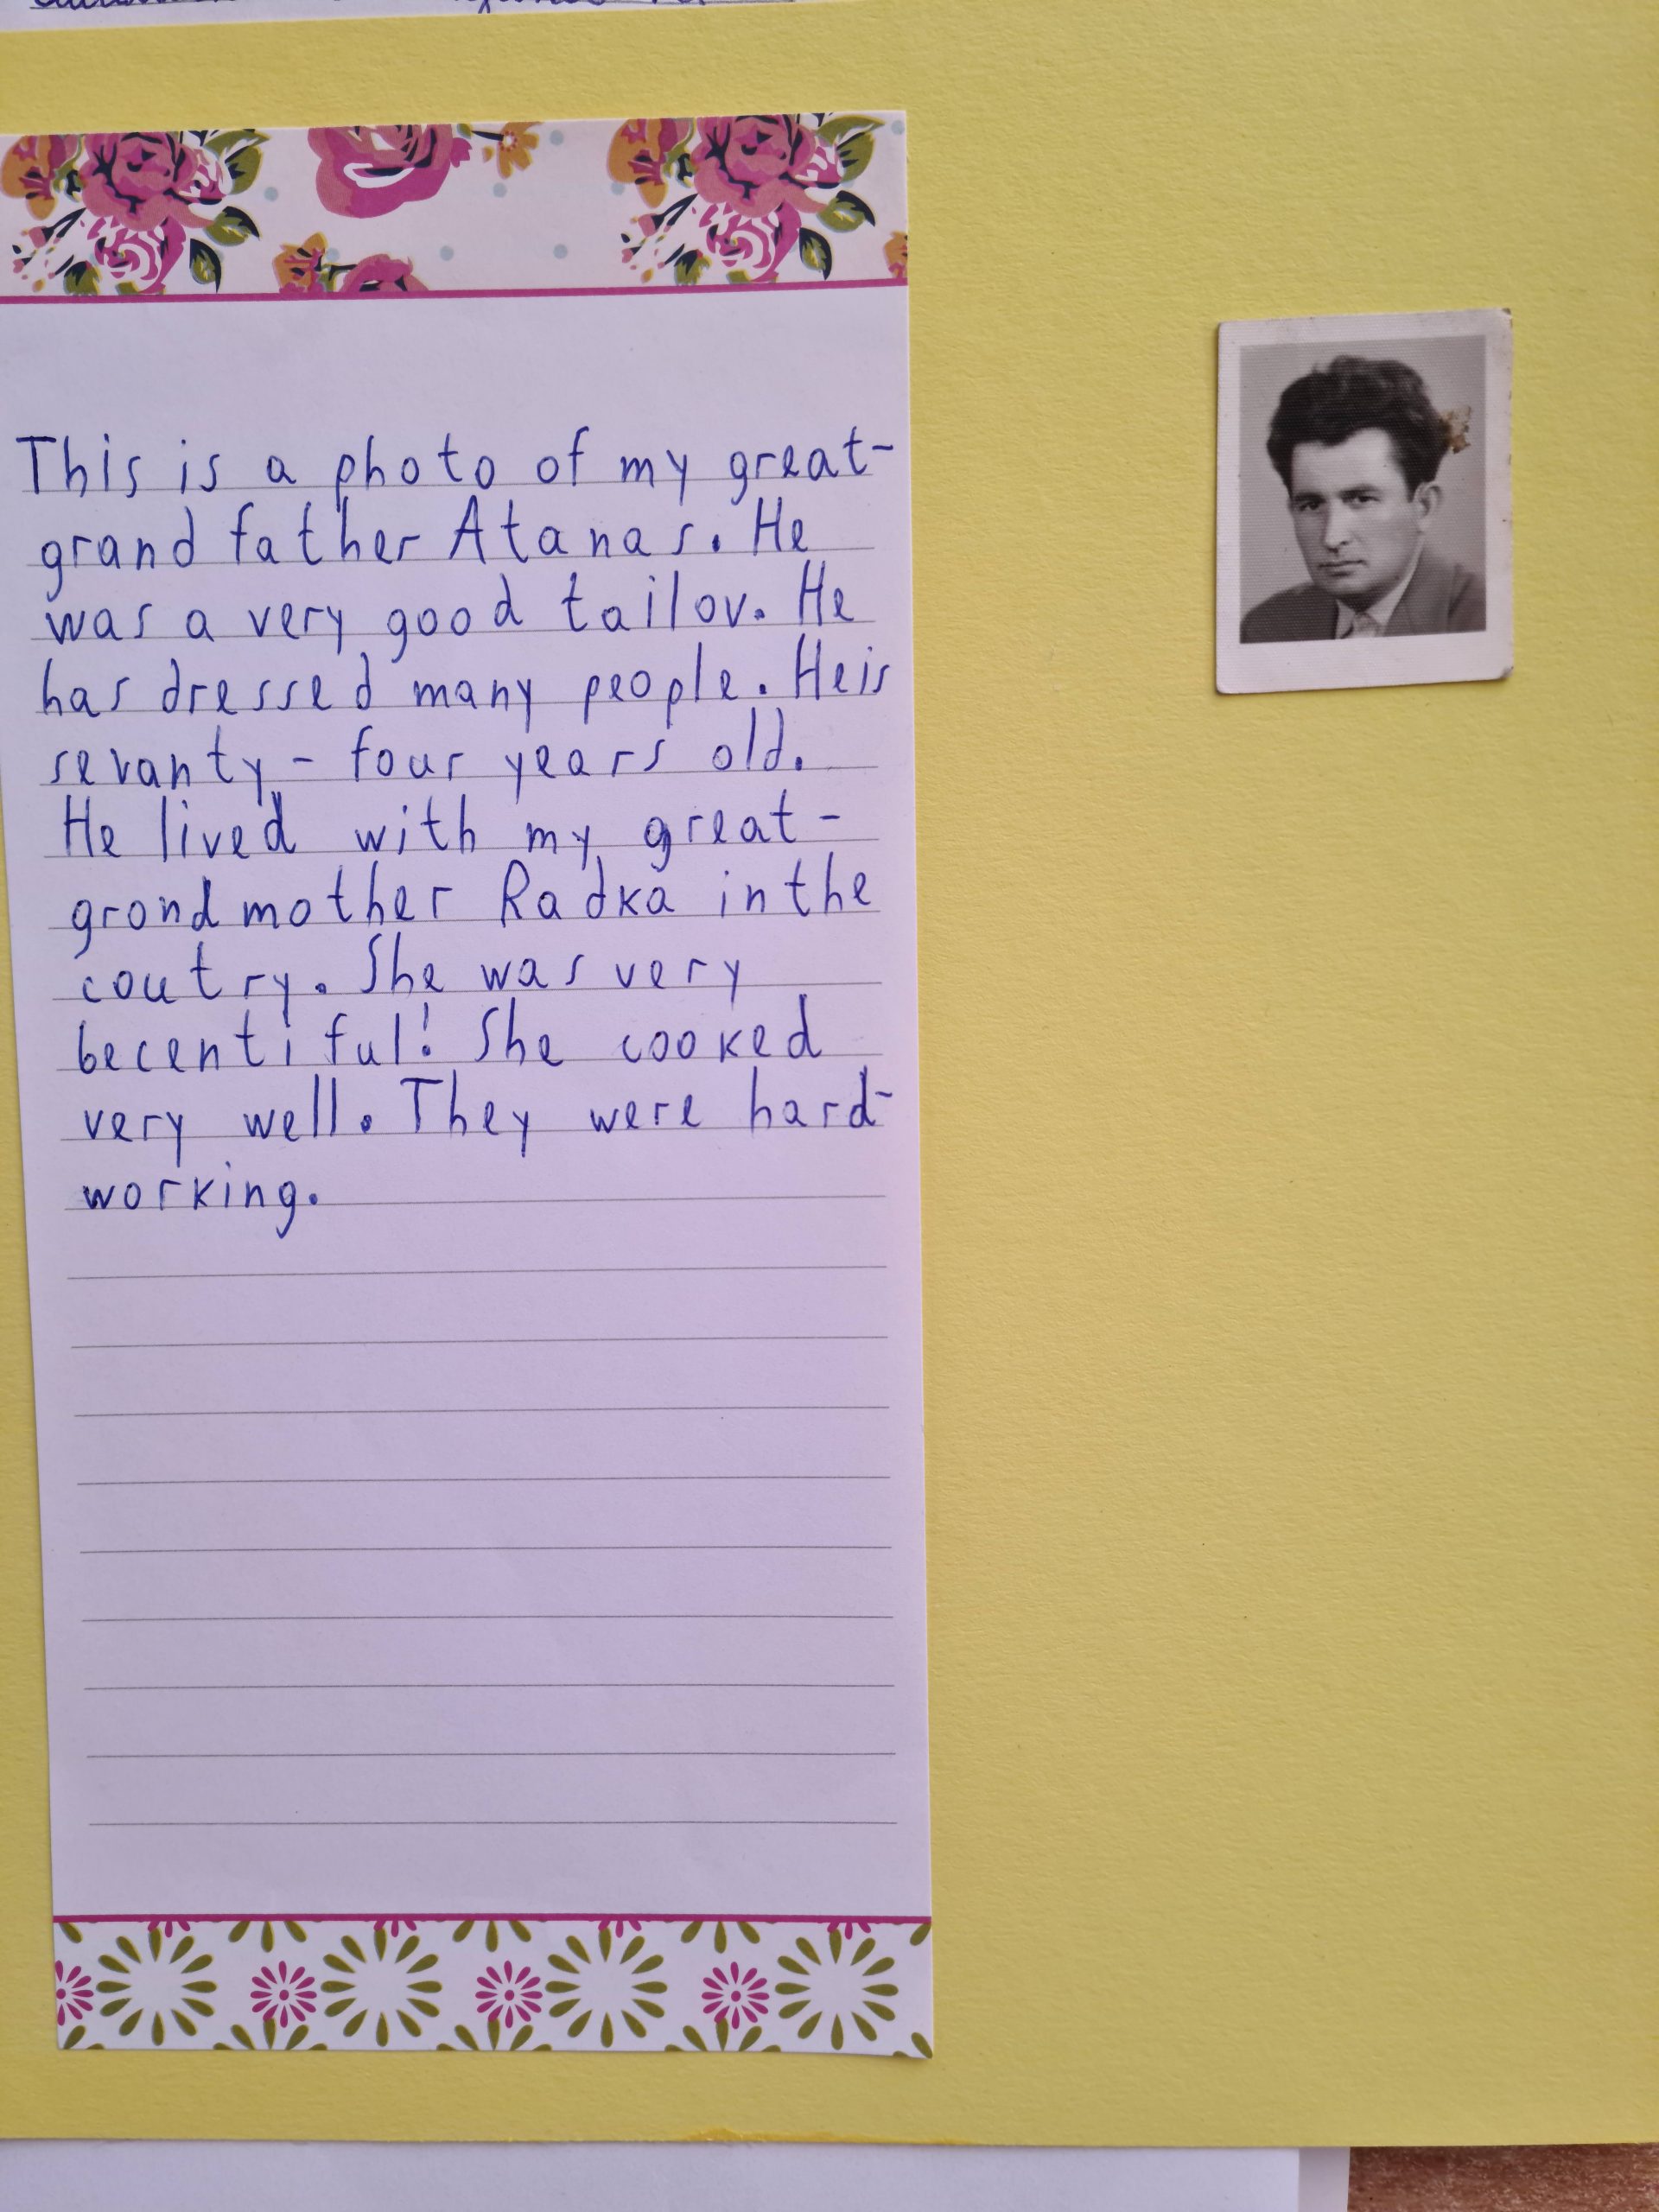 This is a photo of my great-
grand father Atanas. He
was a very good tailov. He
has dressed many people. He is
sevanty - four years old.
He lived with my great -
grondmother Radka in the
coutry. She was very
becentiful! She cooked
very well. They were hard-
working.